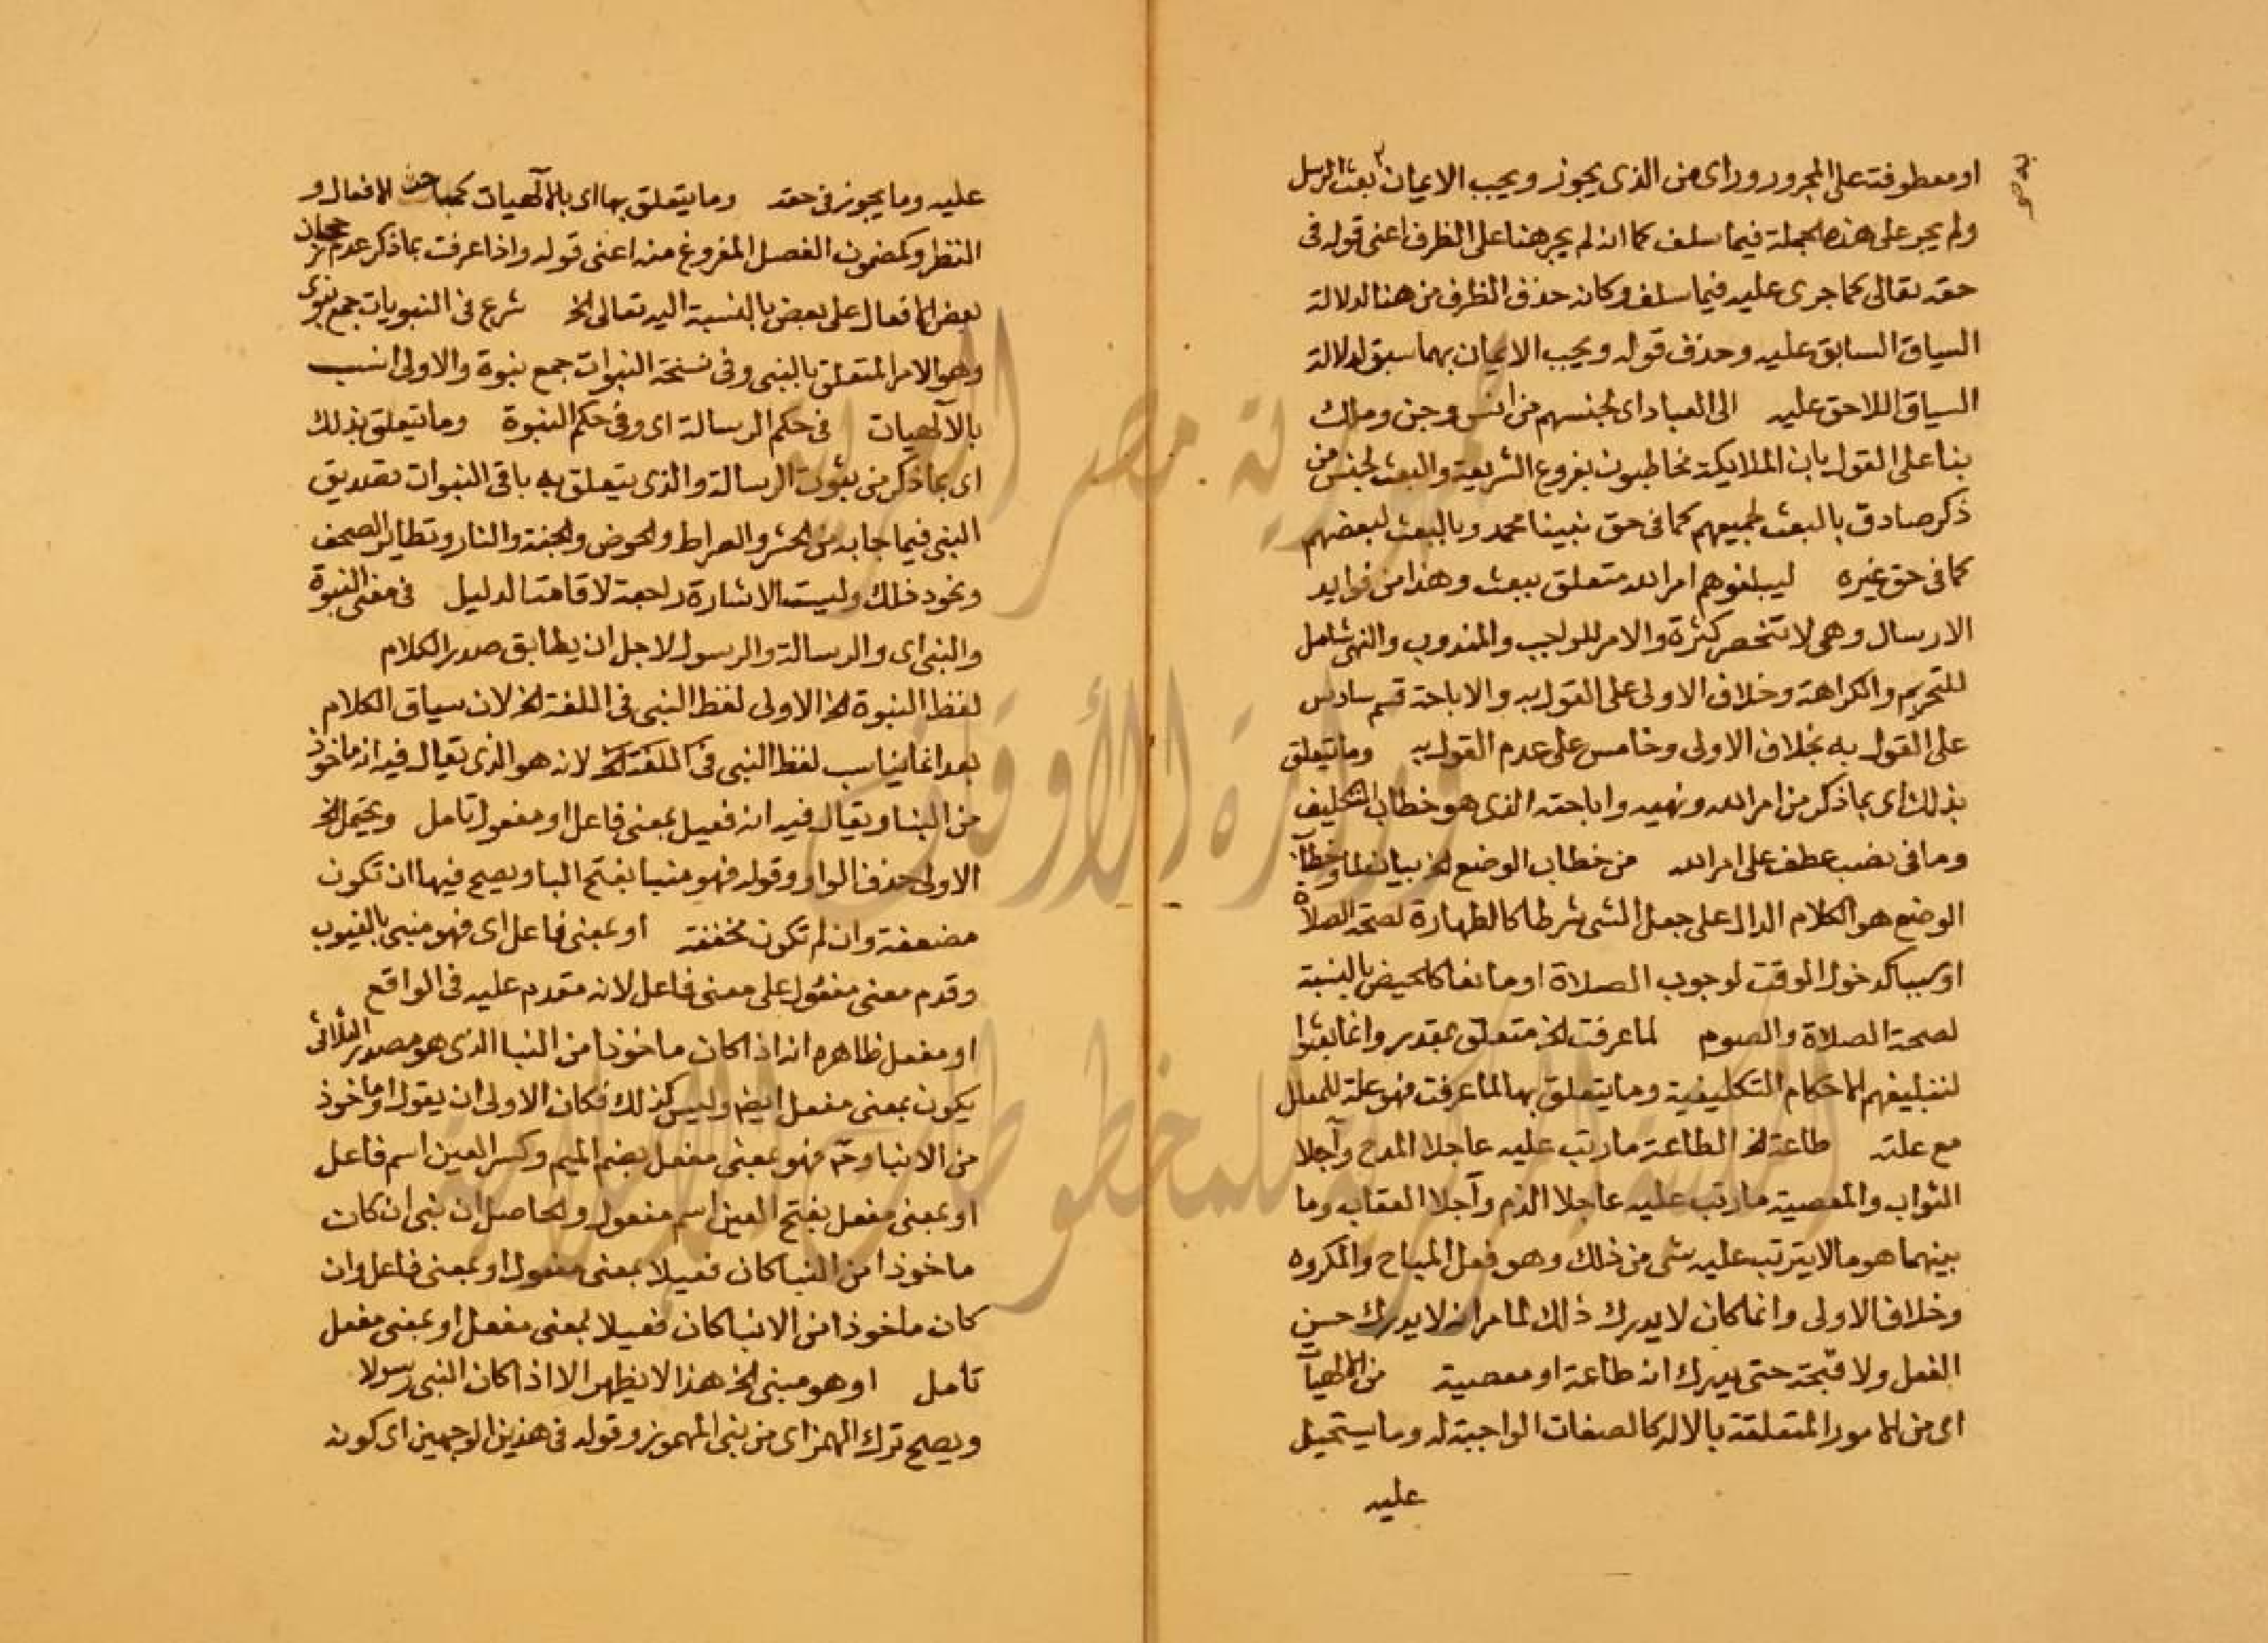 او معطوفة على المجرور وراى من الذى يجوز ويجب الايمان بعث الرسل
به صح
ولم يجر على هذه الجملة فيما سلف كما انه لم يجر هنا على الظرف اعنى قوله فى
حقه تعالى كما جرى عليه فيما سلف وكانه حذف الظرف من هنا لدلالة
السياق السابق عليه وحذف قوله ويجب الايمان بهما سبق لدلالة
السياق اللاحق عليه الى العباد اى لجنسهم من انس وجن وملك
بنا على القول بان الملايكة مخاطبون بفروع الشريعة والبعث لجنس من
ذكر صادق بالبعث لجميعهم كما فى حق نبينا محمد وبالبعث لبعضهم
كما فى حق غيره ليبلغوهم امر الله متعلق ببعث وهذا من فوايد
الارسال وهى لا تنحصر كثرة والامر للواجب والمندوب والنهى شامل
للتحريم والكراهة وخلاف الاولى على القول به والاباحة قسم سادس
على القول به بخلاف الاولى وخامس على عدم القول به وما يتعلق
بذلك اى بما ذكر من امر الله ونهيه واباحته الذى هو خطاب التكليف
وما فى نصب عطف على امر الله من خطاب الوضع الخ بيان لما وخطاب
الوضع هو الكلام الدال على جعل الشى شرطا كالطهارة لصحة الصلاة
او سببا كدخول الوقت لوجوب الصلاة او مانعا كالحيض بالنسبة
لصحة الصلاة والصوم لما عرفت الخ متعلق بمقدر وانما بعثوا
لتبليغهم الاحكام التكليفية وما يتعلق بها لما عرفت فهو علة للمعلل
مع علته طاعة الخ الطاعة ما رتب عليه عاجلا المدح وآجلا
الثواب والمعصية ما رتب عليه عاجلا الذم وآجلا العقاب وما
بينهما هو ما لا يترتب عليه شى من ذلك وهو فعل المباح والمكروه
وخلاف الاولى وانما كان لا يدرك ذلك لما مر انه لا يدرك حسن
الفعل ولا قبحه حتى يدرك انه طاعة او معصية من الالهيات
اى من الامور المتعلقة بالاله كالصفات الواجبة له وما يستحيل
عليه
عليه وما يجوز فى حقه وما يتعلق بها اى بالآلهيات كمباحث الافعال و
النظر وكمضمون الفصل المفروغ منه اعنى قوله واذا عرفت بما ذكر عدم رجحان
بعض الافعال على بعض بالنسبة اليه تعالى الخ شرع فى النبويات جمع نبوى
وهو الامر المتعلق بالنبى وفى نسخة النبوات جمع نبوة والاولى انسب
بالآلهيات فى حكم الرسالة اى وفى حكم النبوة وما يتعلق بذلك
اى بما ذكر من ثبوت الرسالة والذى يتعلق به باقى النبوات تصديق
النبى فيما جا به من الحشر والصراط والحوض والجنة والنار وتطاير الصحف
ونحو ذلك وليست الاشارة راجعة لاقامة الدليل فى معنى النبوة
والنبى اى والرسالة والرسول لاجل ان يطابق صدر الكلام
لفظ النبوة الخ الاولى لفظ النبى فى اللغة الخ لان سياق الكلام
بعد انما يناسب لفظ النبى فى اللغة الخ لانه هو الذى يقال فيه انه ماخوذ
من النبا ويقال فيه انه فعيل بمعنى فاعل او مفعول تامل ويحتمل الخ
الاولى حذف الواو وقوله فهو منبا بفتح البا ويصح فيها ان تكون
مضعفة وان لم تكون مخففة او بمعنى فاعل اى فهو منبى بالغيوب
وقدم معنى مفعول على معنى فاعل لانه متقدم عليه فى الواقع
او مفعل ظاهره انه اذا كان ماخوذا من النبا الذى هو مصدر الثلاثى
يكون بمعنى مفعل ايضا وليس كذلك فكان الاولى ان يقول او ماخوذ
من الانبا وح فهو بمعنى مفعل بضم الميم وكسر العين اسم فاعل
او بمعنى مفعل بفتح العين اسم مفعول والحاصل ان نبى ان كان
ماخوذا من النبا كان فعيلا بمعنى مفعول او بمعنى فاعل وان
كان ماخوذا من الانبا كان فعيلا بمعنى مفعل او بمعنى مفعل
تأمل او هو مبنى الخ هذا لا يظهر الا اذا كان النبى رسولا
ويصح ترك الهمز اى من نبى المهموز وقوله فى هذين الوجهين اى كونه
جمهورية مصر العربية
وزارة الأوقاف
المكتبة المركزية للمخطوطات الإسلامية